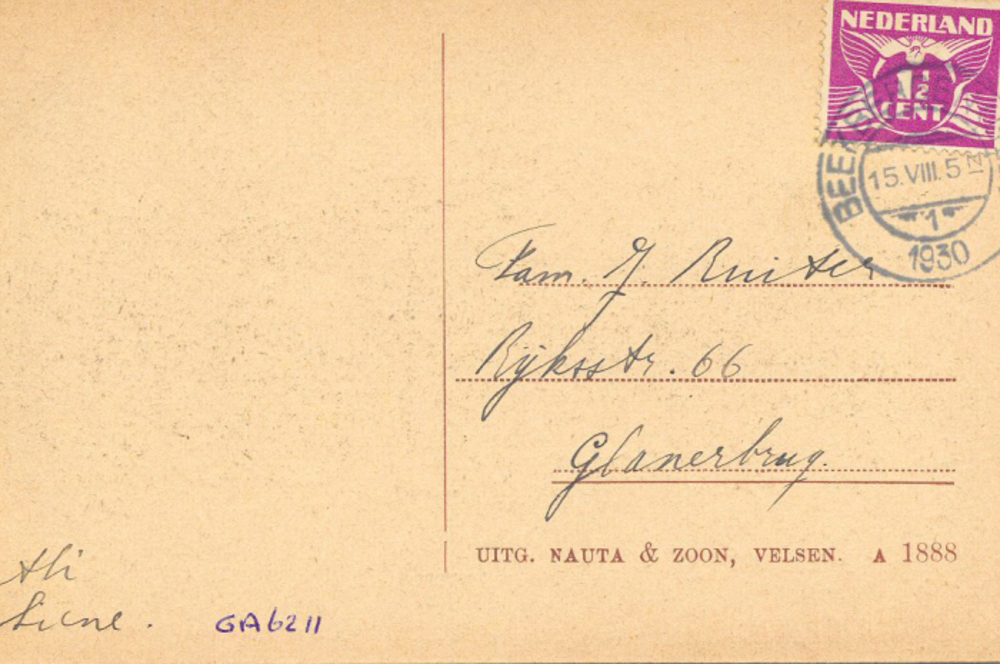 NEDERLAND
1½
CENT
15.VIII.5 N
1
1930
Fam. J. Ruiter
Rijksstr. 66
Glanerbrug.
UITG. NAUTA & ZOON, VELSEN. A 1888
Ali
GA6211